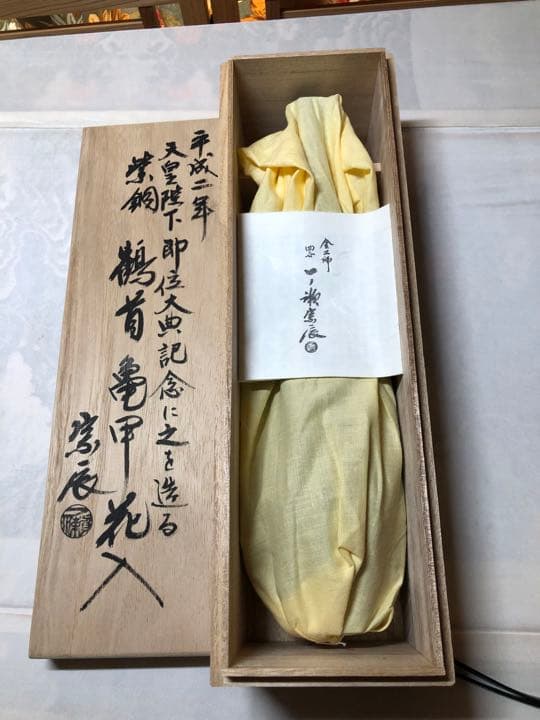 平成二年
天皇陛下即位大典記念に之を造る
紫銅 鶴首亀甲花入
宗辰
金工師
四代
一ノ瀬宗辰